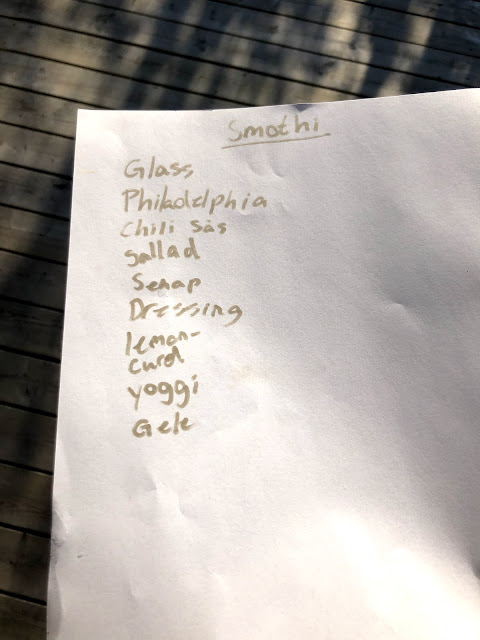 Smothi
Glass
Philadelphia
Chili sås
sallad
Senap
Dressing
lemon-
curd
yoggi
Gele